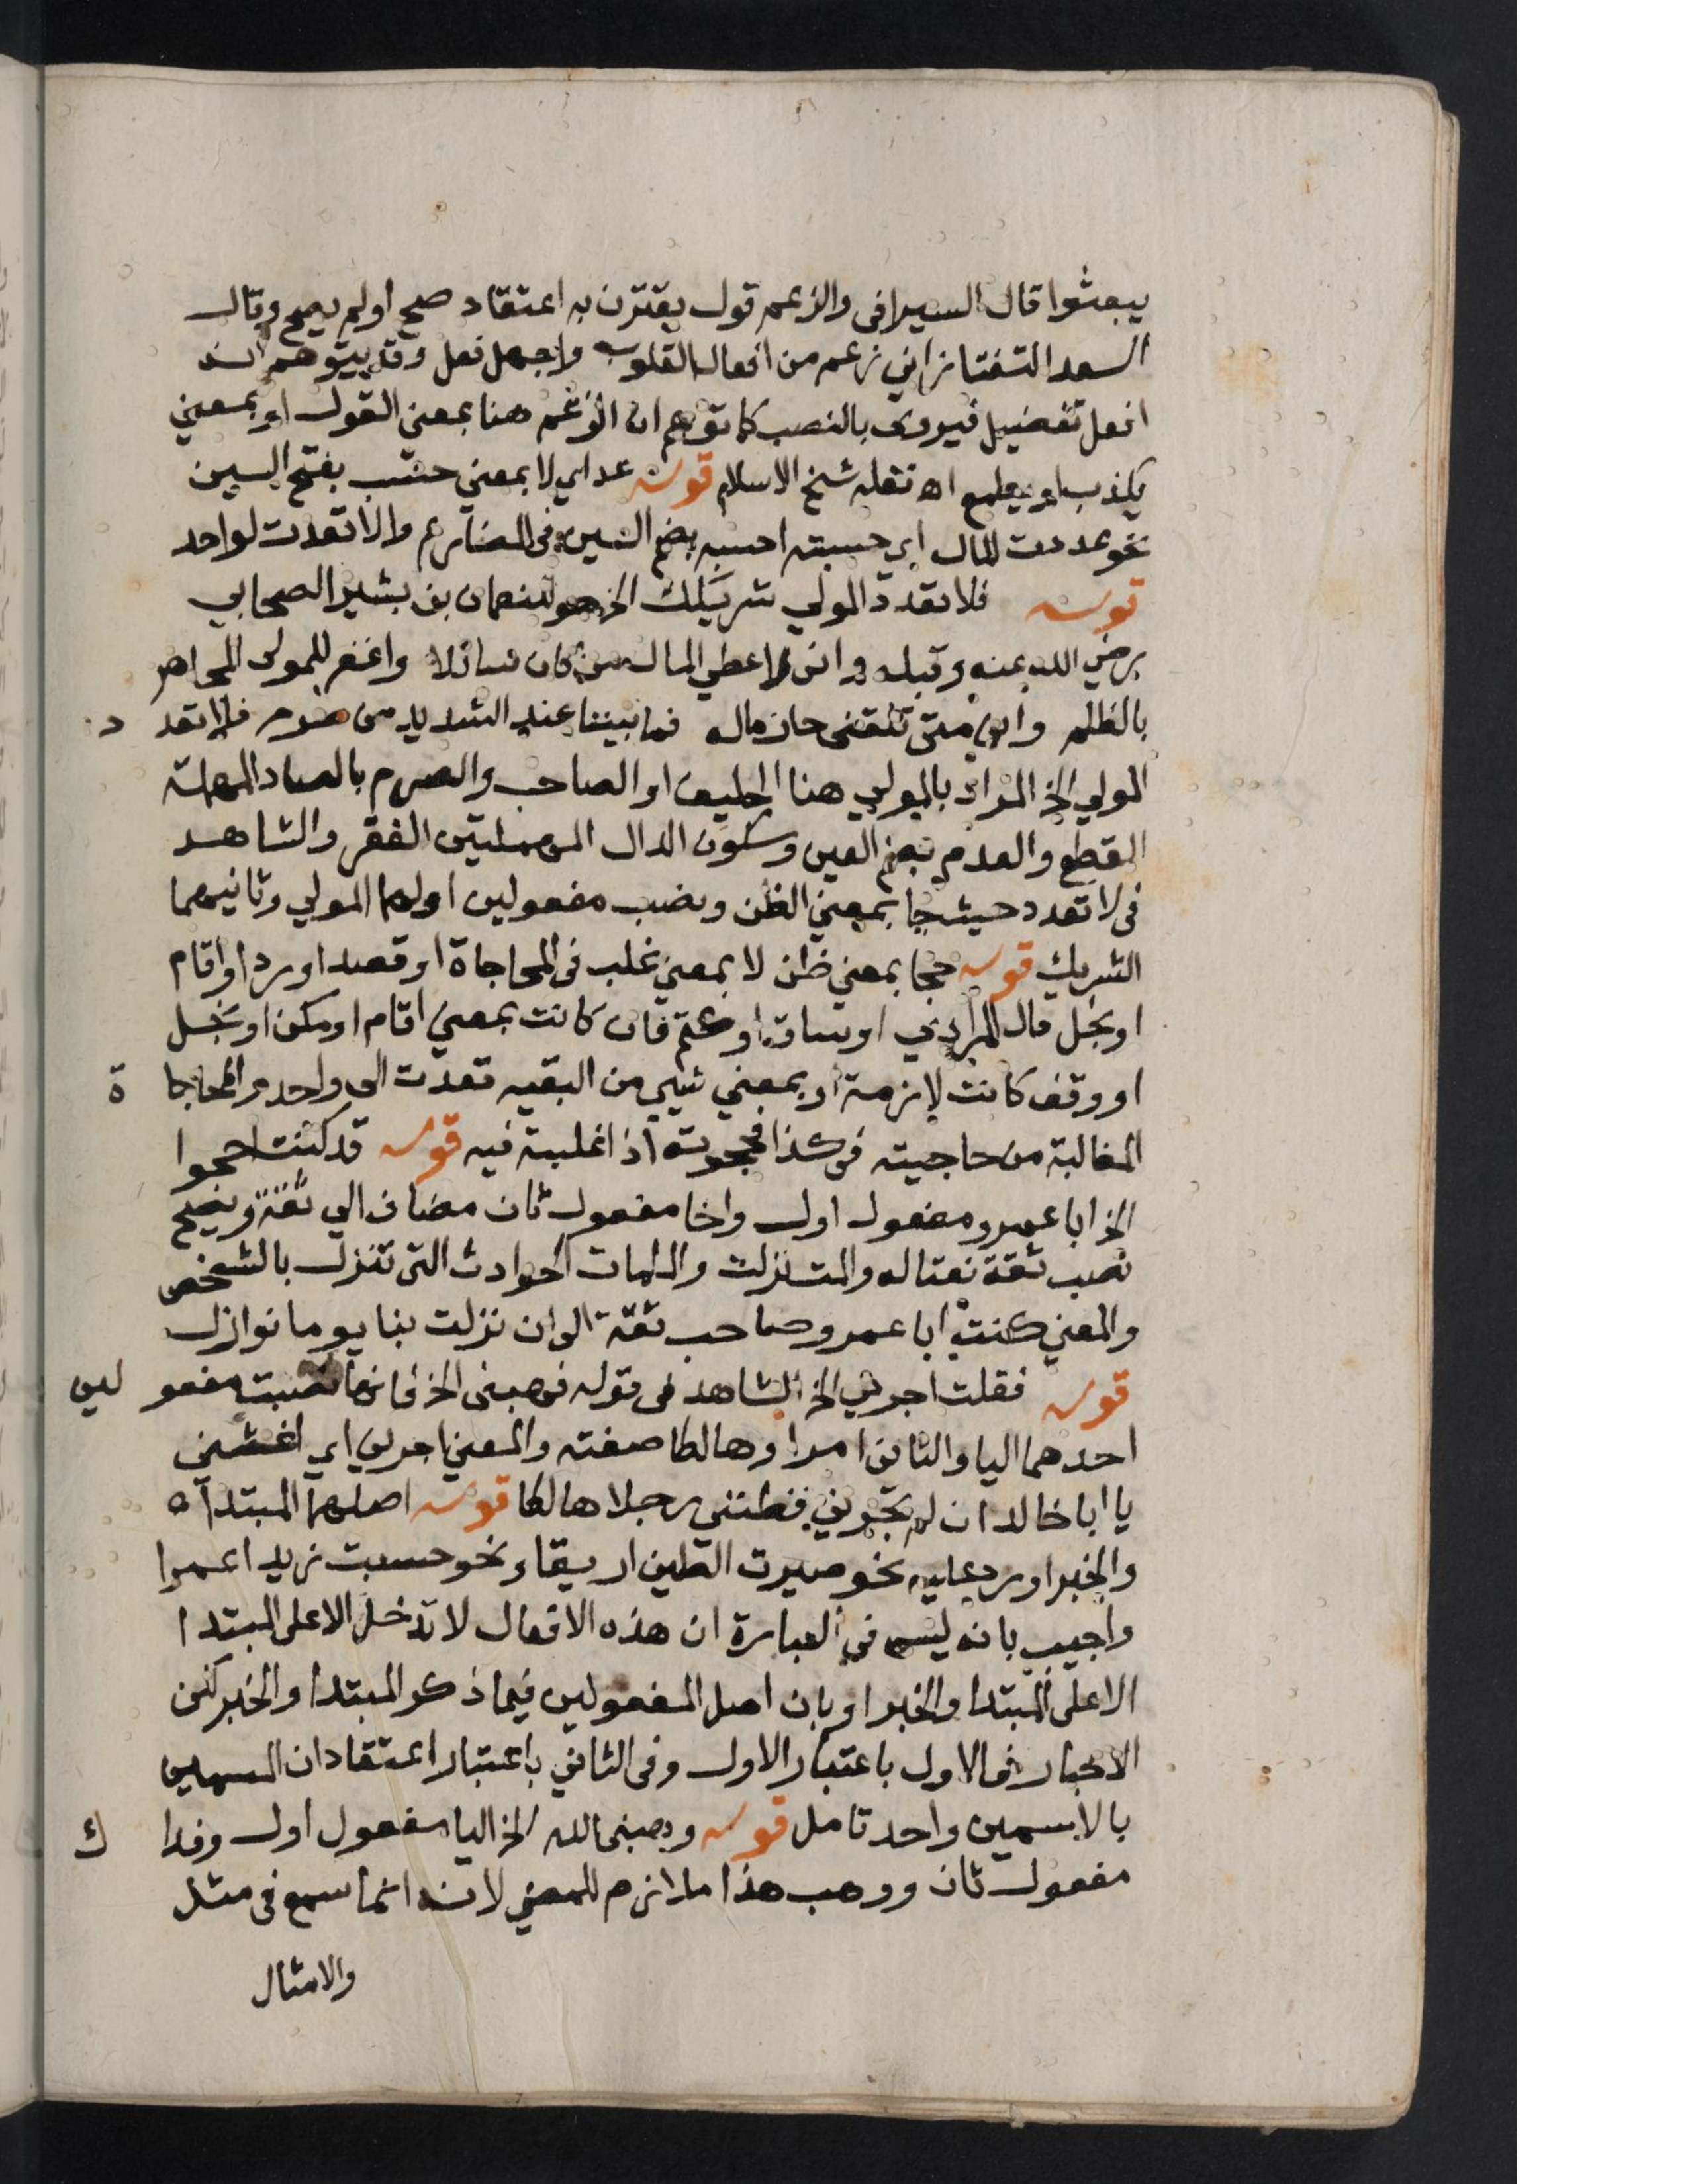 يبعثوا قال السيرافى والزعم قول يقترن به اعتقاد صح اولم يصح وقال
السعد التفتازاني زعم من افعال القلوب واجهل فعل وقد يتوهم انه
افعل تفضيل فيروى بالنصب كما توهم ان الزعم هنا بمعنى القول او بمعني
يكذب او يعلم اه نقله شيخ الاسلام قوله عداي لا بمعني حسب بفتح السين
نحو عددت المال اي حسبته احسبه بضم السين فى المضارع والا تعدت لواحد
قوله فلا تعدد المولي شريكك الخ هو للنعمان بن بشير الصحابي
رضي الله عنه وقبله وانى لاعطي المال من كان سائلا واغفر للمولى المجاهر
بالظلم واني متى تلقنى حازماله فما بيننا عند الشديد من صرم فلا تعدد
المولي الخ المراد بالمولي هنا الحليف او الصاحب والصرم بالصاد المهملة
القطع والعدم بضم العين وسكون الدال المهملتين الفقر والشاهد
فى لا تعدد حيث جا بمعني الظن ونصب مفعولين اولهما المولي وثانيهما
الشريك قوله حجا بمعني ظن لا بمعني غلب فى المحاجاة او قصد او رد او اقام
او بخل قال المرادي او ساق او كتم فان كانت بمعني اقام او مكن او بخل
او وقف كانت لازمة او بمعني شيي من البقيه تعدت الى واحد والمحاجاة
المغالبة من حاجيته فى كذا فحجوته اذا غلبته فيه قوله قد كنت احجوا
الخ ابا عمرو مفعول اول واخا مفعول ثان مضاف الي ثقة ويصح
نصب ثقة نعتا له والمت نزلت والملمات الحوادث التى تنزل بالشخص
والمعني كنت ابا عمرو صاحب ثقة الى ان نزلت بنا يوما نوازل
قوله فقلت اجرني الخ الشاهد فى قوله فهبنى الخ فانها نصبت مفعولين
احدهما اليا والثانى امرا وهالكا صفته والمعني اجرني اي اغثني
يا ابا خالد ان لم تجرني فظنني رجلا هالكا قوله اصلهما المبتدآه
والخبر اورد عليه نحو صيرت الطين ابريقا ونحو حسبت زيدا عمرا
واجيب بانه ليس فى العبارة ان هذه الافعال لا تدخل الا على المبتدا
الا على المبتدا والخبر او بان اصل المفعولين فيما ذكر المبتدا والخبر لكن
الاخبار فى الاول باعتبار الاول وفى الثاني باعتبار اعتقاد ان المسميين
بالاسمين واحد تامل قوله وهبنى الله الخ اليا مفعول اول وفداك
مفعول ثان ووهب هذا ملازم للمضي لانه انما سمع فى مثل
والامثال